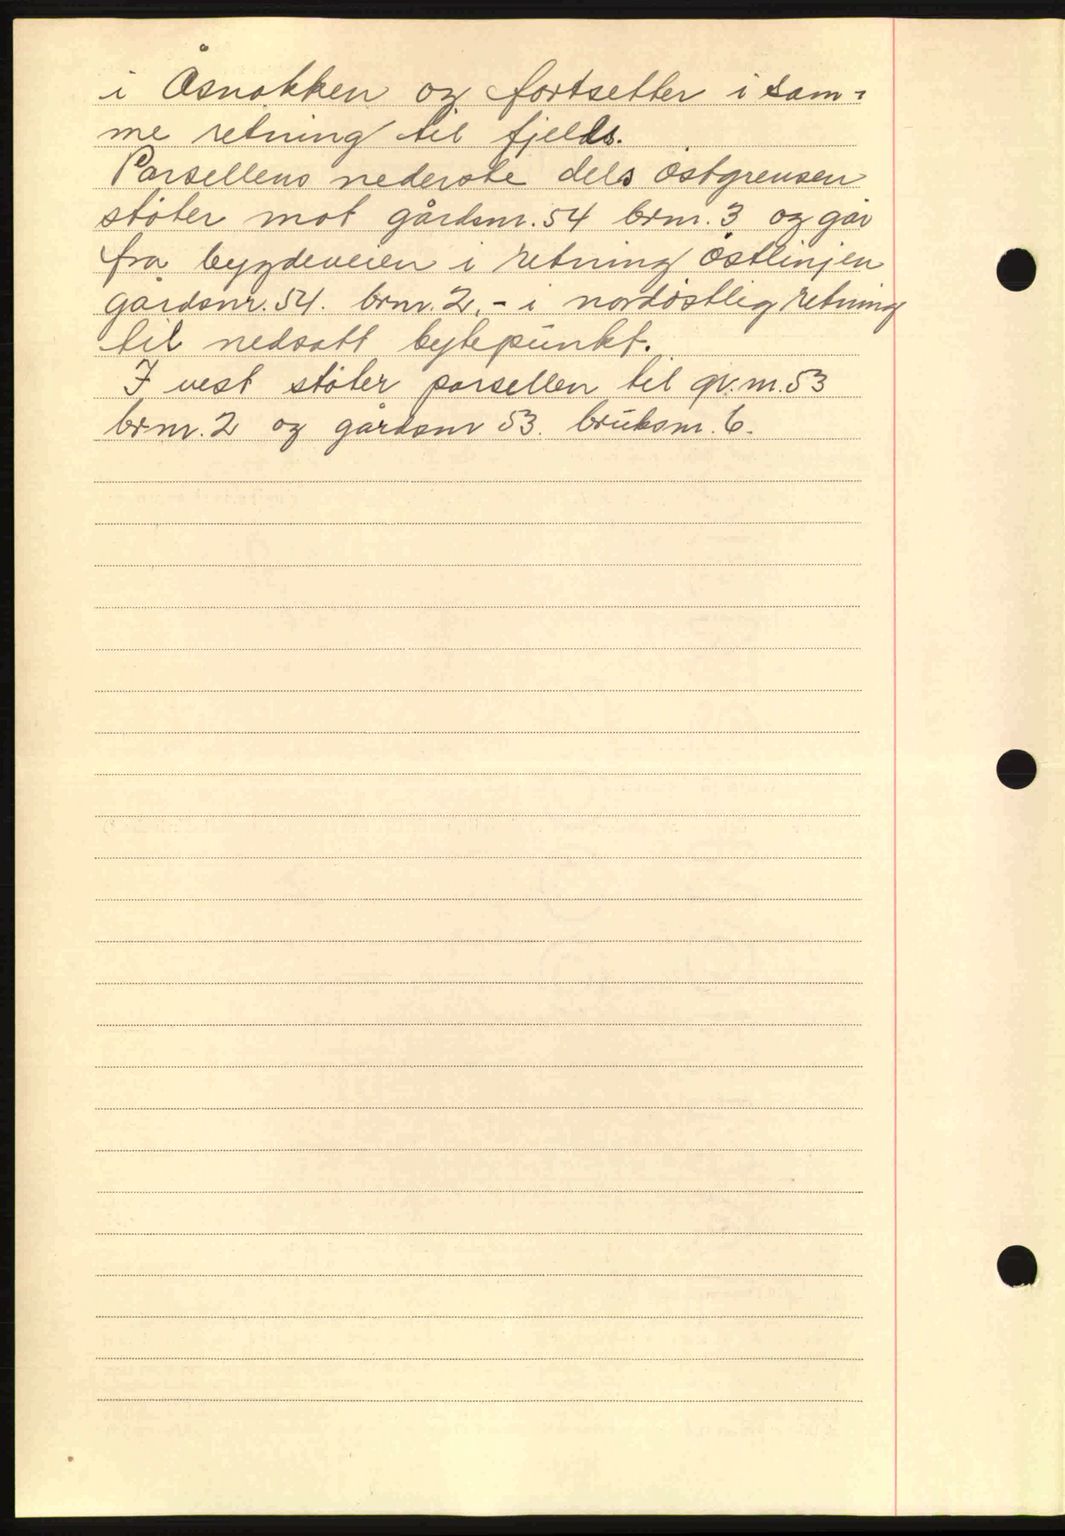 i Åsnakken og fortsetter i sam=
me retning til fjells.
Parsellens nederste dels östgrensen
stöter mot gårdsnr. 54 brnr. 3 og går
fra bygdeveien i retning östlinjen
gårdsnr. 54. brnr. 2, - i nordöstlig retning
til nedsatt bytepunkt.
I vest stöter parsellen til gr.nr. 53
brnr. 2 og gårdsnr 53. bruksnr. 6.